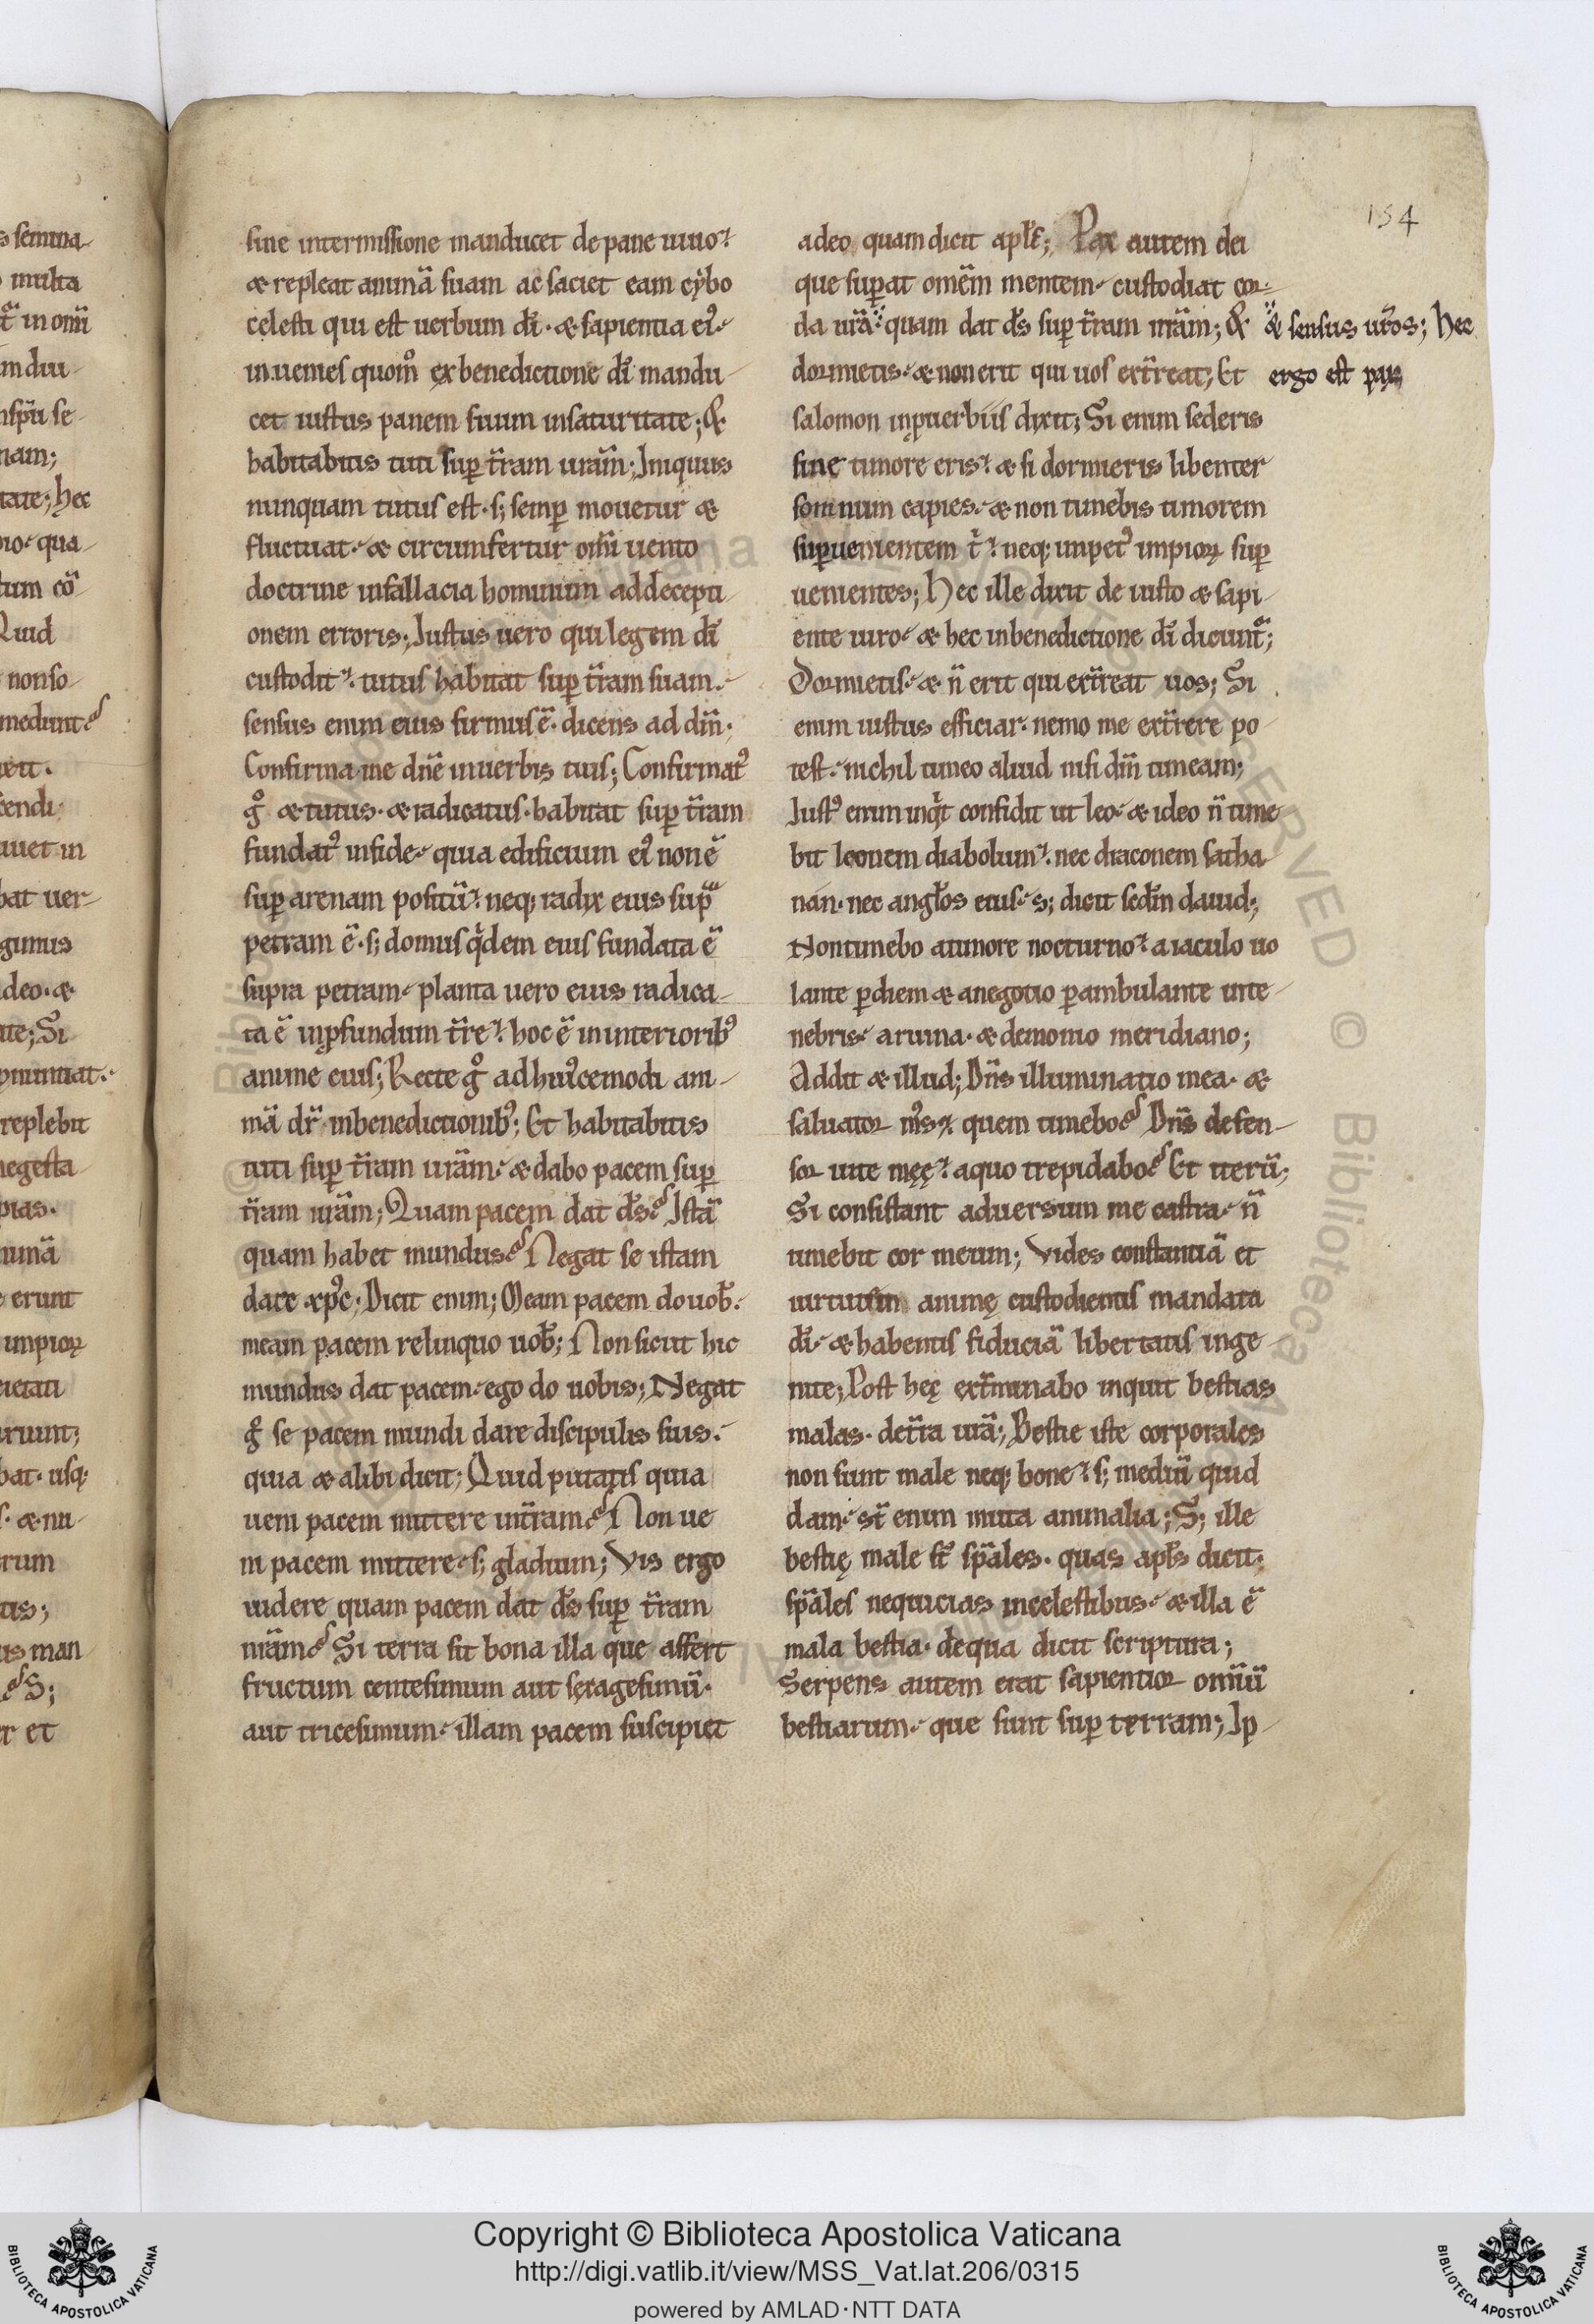 154
sine intermissione manducet de pane uiuo
⁊ repleat animā suam ac saciet eam cybo
celesti qui est uerbum dī · ⁊ sapientia ei᷒
inuenies quom̊ ex benedictione dī mandu-
cet iustus panem suum insaturitate; &
habitabitis tuti suꝑ t̄ram urām; Iniquus
nunquam tutus est · s; semꝑ mouetur ⁊
fluctuat · ⁊ circumfertur om̄i uento
doctrine infallacia hominum addecepti-
onem erroris; Iustus uero qui legem dī
custodit · tutus habitat suꝑ t̄ram suam ·
sensus enim eius firmus ē · dicens ad dn̄m;
Confirma me dn̄e inuerbis tuis; Confirmat᷒
g̊ ⁊ tutus · ⁊ radicatus · habitat suꝑ t̄ram
fundat᷒ infide · quia edificium ei᷒ non ē
suꝑ arenam positū · neq; radix eius supᵃ
petram ē · s; domus qͥdem eius fundata ē
supra petram · planta uero eius radica-
ta ē inꝓfundum t̄re · hoc ē ininteriorib᷒
anime eius; Recte g̊ adhui᷒cemodi ani-
mā dr̄ inbenedictionib᷒; Et habitabitis
tuti suꝑ t̄ram urām · ⁊ dabo pacem suꝑ
t̄ram urām; Quam pacem dat ds̄? Istā
quam habet mundus? Negat se istam
dare xp̄c; Dicit enim; Meam pacem do uob̄ ·
meam pacem relinquo uob̄; Non sicut hic
mundus dat pacem · ego do uobis; Negat
g̊ se pacem mundi dare discipulis suis ·
quia ⁊ alibi dicit; Quid putatis quia
ueni pacem mittere int̄ram? Non ue
ni pacem mittere · s; gladium; Vis ergo
uidere quam pacem dat ds̄ suꝑ t̄ram
nrām? Si terra sit bona illa que affert
fructum centesimum aut sexagesimū ·
aut tricesimum · illam pacem suscipiet
adeo quam dicit apl̄s; Pax autem dei
que suꝑat omēm mentem · custodiat cor-
da urā · quam dat ds̄ suꝑ t̄ram nrām; &
⁊ sensus ur̄os; hec
ergo est pax
dormietis · ⁊ non erit qui uos ext̄reat; Et
salomon inꝓuerbiis dixit; Si enim sederis
sine timore eris · ⁊ si dormieris libenter
somnum capies · ⁊ non timebis timorem
suꝑuenientem t̄ · neq; impet᷒ impioꝝ suꝑ
uenientes; Hec ille dixit de iusto ⁊ sapi-
ente uiro · ⁊ hec inbenedictione dī dicunt᷑;
Dormietis · ⁊ n̄ erit qui ext̄reat uos; Si
enim iustus efficiar · nemo me ext̄rere po-
test · nichil timeo aliud nisi dn̄m timeam;
Iust᷒ enim inqͥt confidit ut leo · ⁊ ideo n̄ time
bit leonem diabolum · nec draconem satha
nan · nec angl̄os eius · s; dicit scdm̄ dauid;
Non timebo atimore nocturno · a iaculo uo
lante ꝑdiem ⁊ anegotio ꝑambulante inte-
nebris · aruina · ⁊ demonio meridiano;
Addit ⁊ illud; Dn̄s illuminatio mea · ⁊
saluator m̄s · quem timebo? Dn̄s defen-
sor uite męę · aquo trepidabo? Et iterū;
Si consistant aduersum me castra · n̄
timebit cor meum; Vides constantiā et
uirtutem animę custodientis mandata
dī · ⁊ habentis fiduciā libertatis inge-
nite; Post hęc ext̄minabo inquit bestias
malas · det̄ra urā; Bestie iste corporales
non sunt male neq; bone · s; mediū quid
dam · st̄ enim muta animalia; S; ille
bestię male st̄ sp̄ales · quas apl̄s dicit ·
sp̄ales nequicias incelestibus · ⁊ illa ē
mala bestia · dequa dicit scriptura;
Serpens autem erat sapientior omīū
bestiarum · que sunt suꝑ terram; Ip-
Copyright © Biblioteca Apostolica Vaticana
http://digi.vatlib.it/view/MSS_Vat.lat.206/0315
powered by AMLAD·NTT DATA
BIBLIOTECA APOSTOLICA VATICANA
BIBLIOTECA APOSTOLICA VATICANA